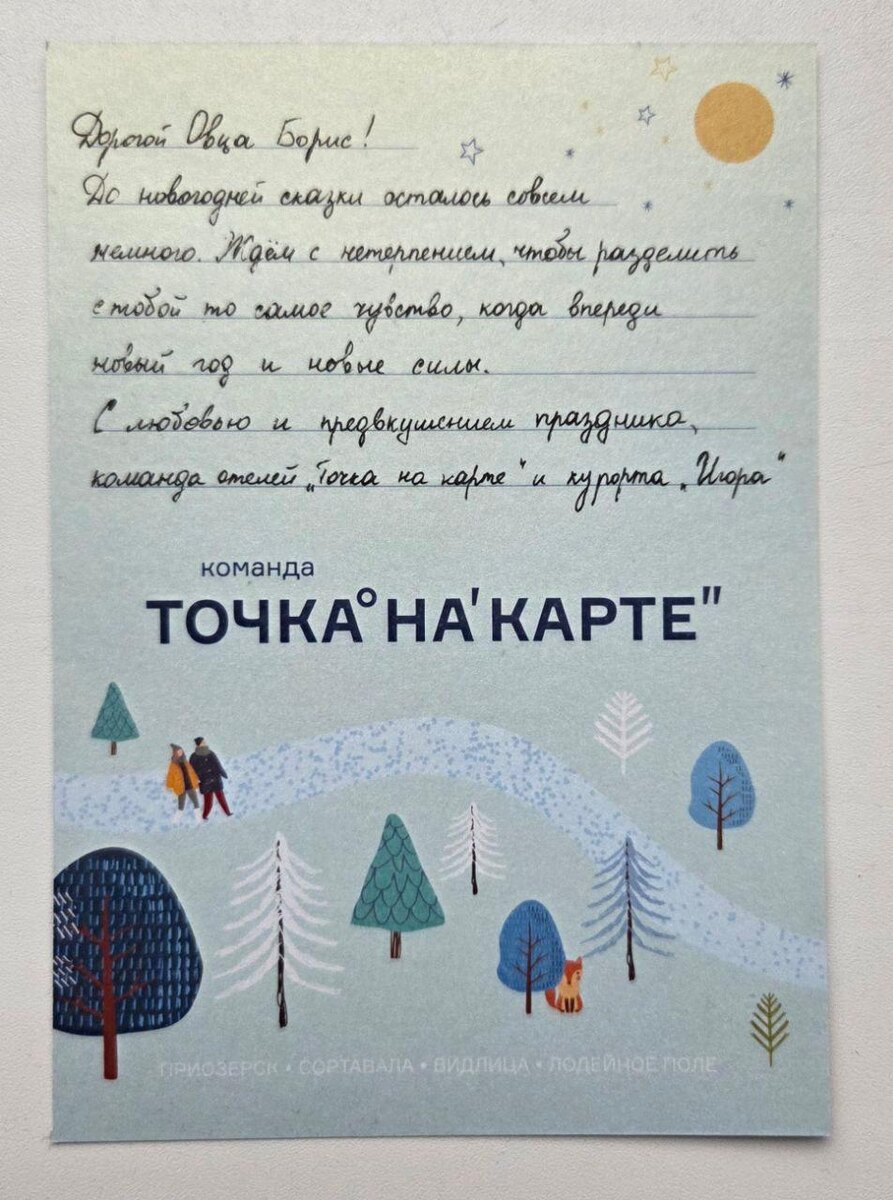 Дорогой Овца Борис!
До новогодней сказки осталось совсем
немного. Ждём с нетерпением, чтобы разделить
с тобой то самое чувство, когда впереди
новый год и новые силы.
С любовью и предвкушением праздника,
команда отелей „Точка на карте" и курорта „Игора"
команда
ТОЧКА° НА' КАРТЕ"
ПРИОЗЕРСК • СОРТАВАЛА • ВИДЛИЦА • ЛОДЕЙНОЕ ПОЛЕ